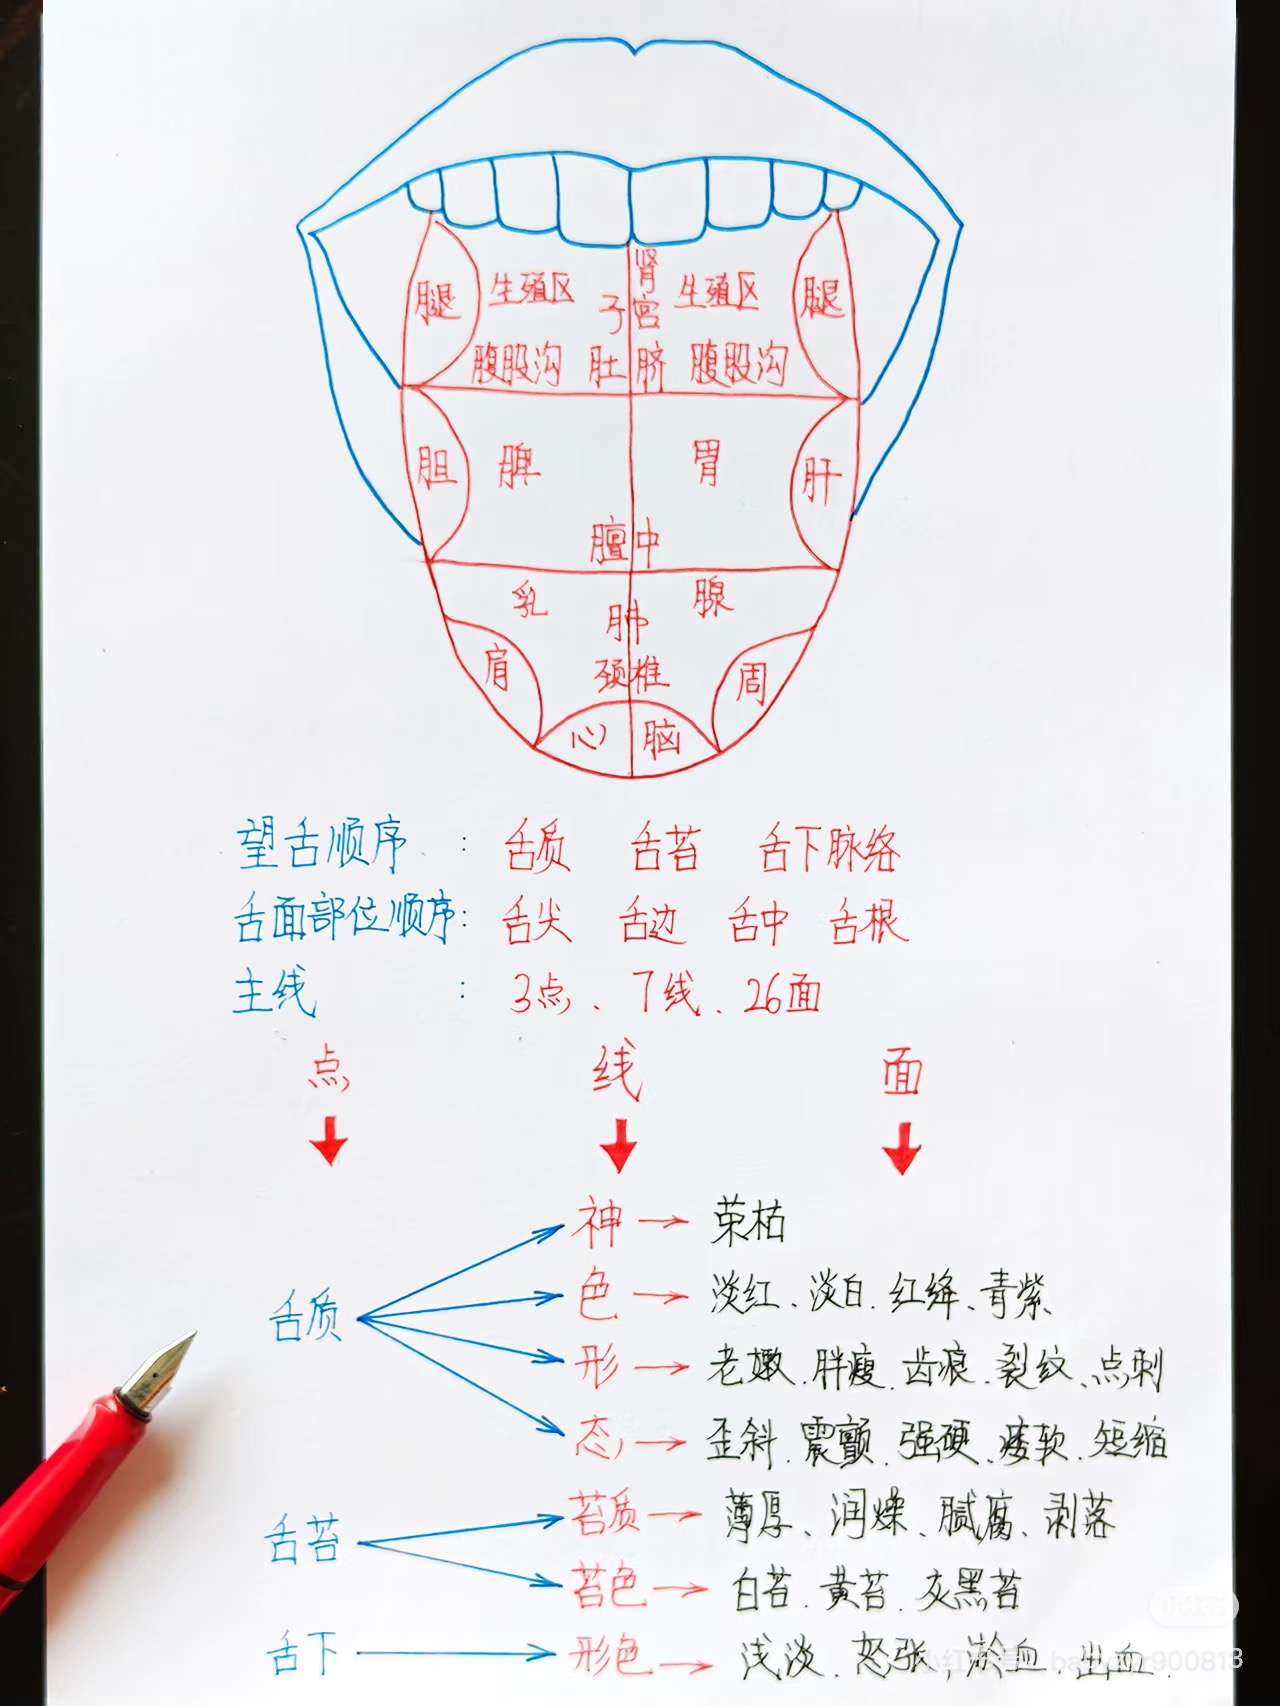 肾
腿 生殖区 子宫 生殖区 腿
腹股沟 肚脐 腹股沟
胆 脾 胃 肝
膻中
乳 肺 腺
肩 颈椎 周
心 脑
望舌顺序 : 舌质 舌苔 舌下脉络
舌面部位顺序: 舌尖 舌边 舌中 舌根
主线 : 3点、7线、26面
点 线 面
神 荣枯
舌质 色 淡红、淡白、红绛、青紫
形 老嫩、胖瘦、齿痕、裂纹、点刺
态 歪斜、震颤、强硬、痿软、短缩
舌苔 苔质 薄厚、润燥、腻腐、剥落
苔色 白苔、黄苔、灰黑苔
舌下 形色 浅淡、怒张、淤血、出血.
小红书